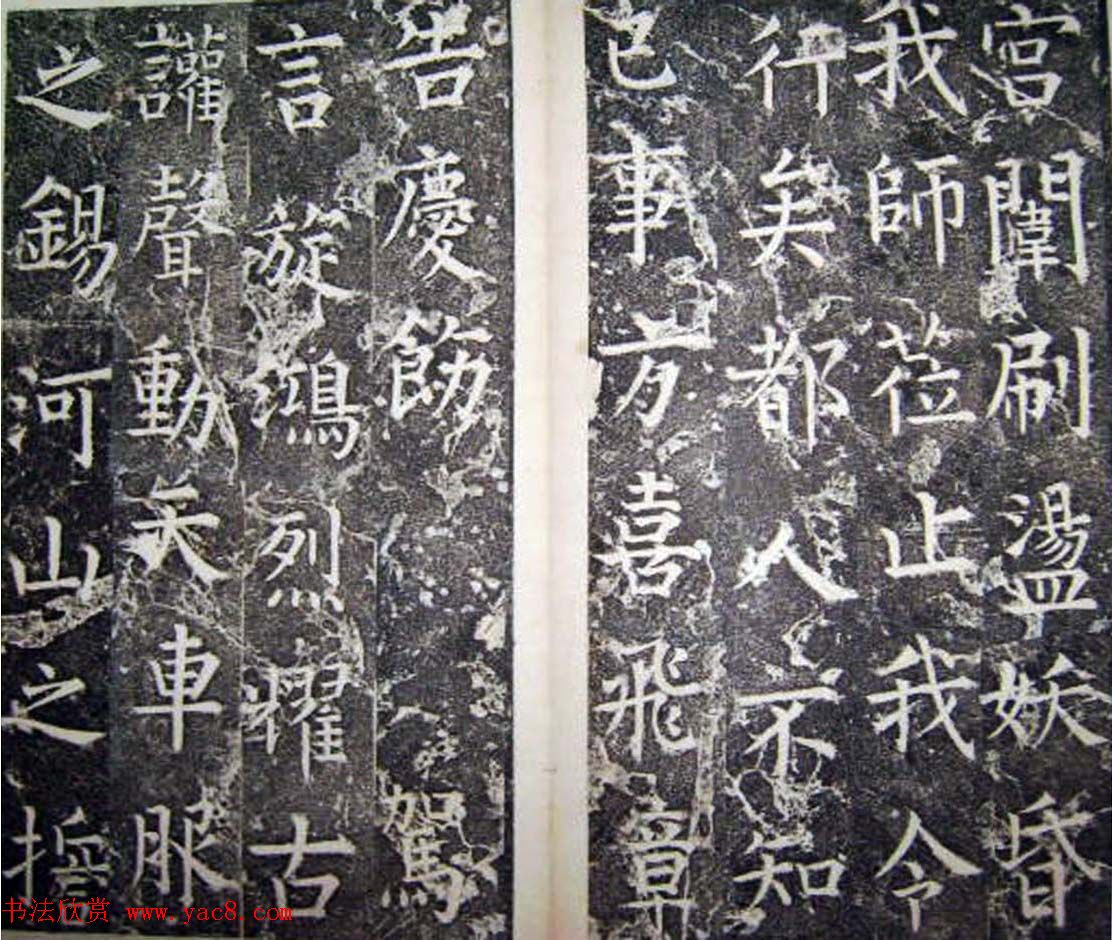 宮闈刷盪妖昏
我師莅止我令
行矣都人不知
已事方喜飛章
告慶飭駕
言旋鴻烈古
讙聲動天車服
之錫河山之
书法欣赏 www.yac8.com